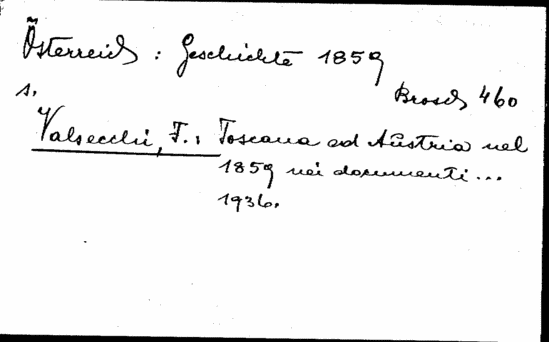 Österreich : Geschichte 1859
s. Brosch 460
Valsecchi, F.: Toscana ed Austria nel
1859 nei documenti...
1936.